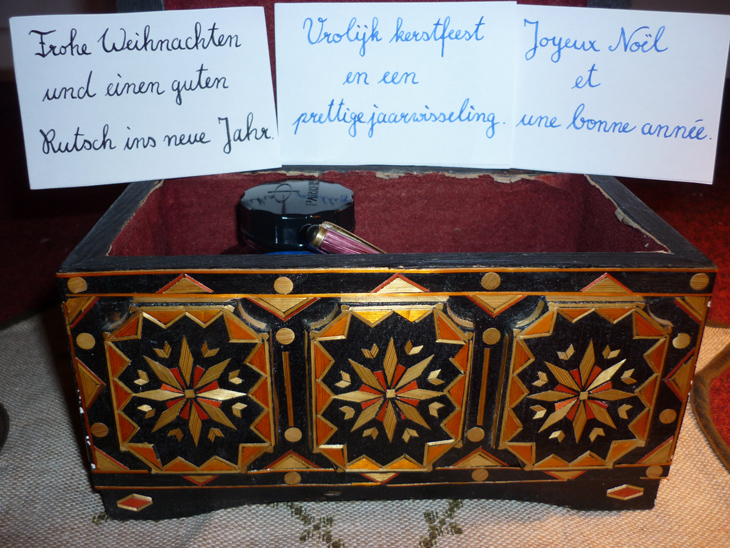 Frohe Weihnachten
und einen guten
Rutsch ins neue Jahr.
Vrolijk kerstfeest
en een
prettige jaarwisseling.
Joyeux Noël
et
une bonne année.